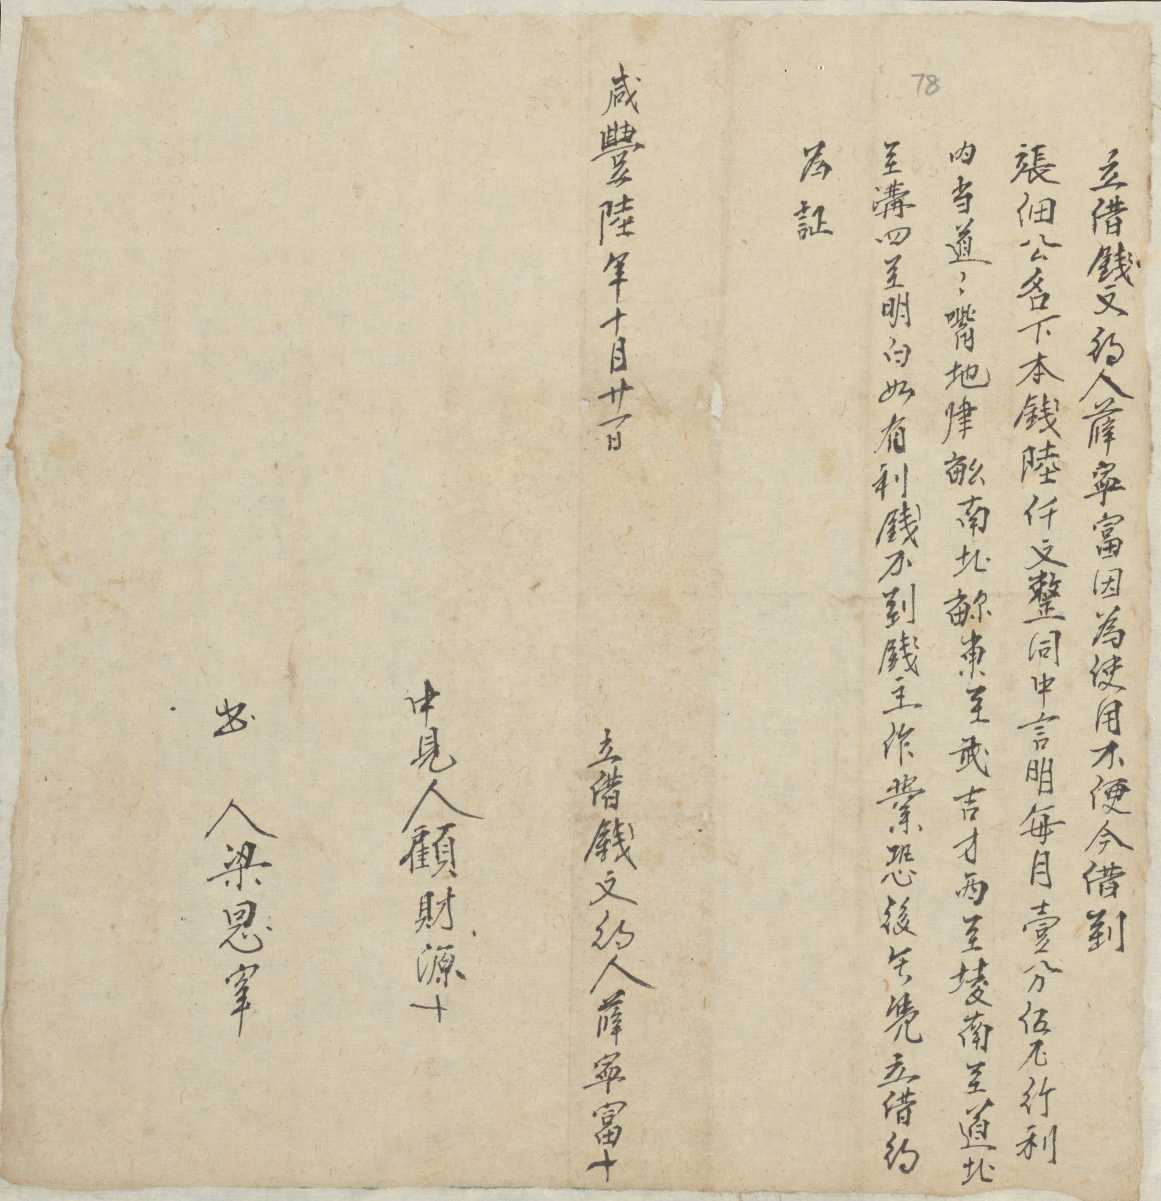 78
立借錢文約人薛寧富因為使用不便今借到
張佃公名下本錢陸仟文整同中言明每月壹分伍厘行利
内当道〻嘴地肆畝南北畛東至武吉才西至堎南至道北
至溝四至明白如有利錢不到錢主作業恐後無凭立借約
為証
咸豐陸年十月廿一日
立借錢文約人薛寧富十
中見人顧財源十
書人梁恩宰